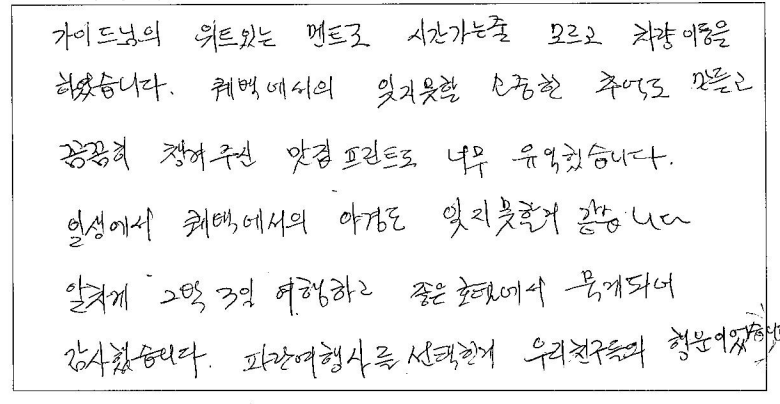 가이드님의 위트있는 멘트로 시간가는줄 모르고 차량이동을
하였습니다. 퀘백에서의 잊지못할 소중한 추억도 만들고
꼼꼼히 챙겨주신 맛집프린트로 너무 유익했습니다.
일생에서 퀘백에서의 야경도 잊지못할거 같습니다
알차게 2박 3일 여행하고 좋은호텔에서 묵게되어
감사했습니다. 파란여행사를 선택한게 우리친구들의 행운이었습니다